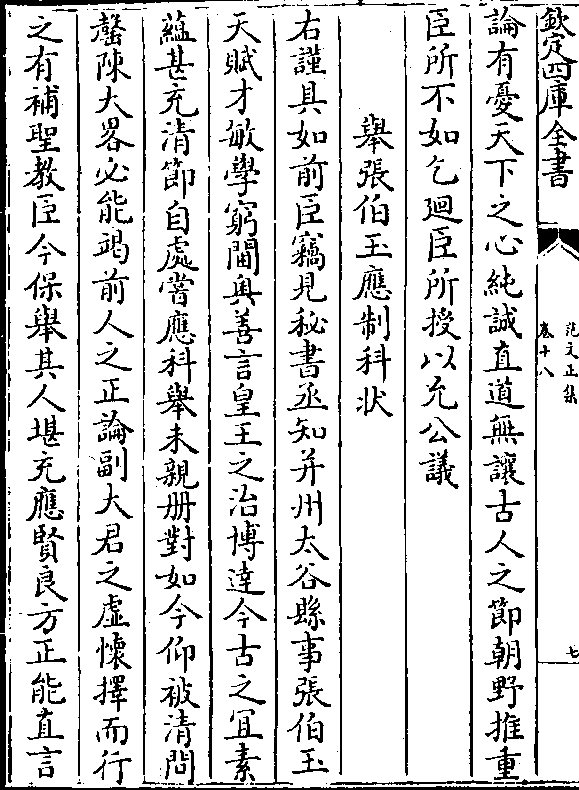 欽定四庫全書
范文正集
卷十八
七
論有憂天下之心純誠直道無讓古人之節朝野推重
臣所不如乞廻臣所授以允公議
舉張伯玉應制科状
右謹具如前臣竊見秘書丞知并州太谷縣事張伯玉
天賦才敏學窮閫奥善言皇王之治博達今古之宜素
蕴甚充清節自處嘗應科舉未親册對如今仰被清問
罄陳大畧必能竭前人之正論副大君之虚懷擇而行
之有補聖教臣今保舉其人堪充應賢良方正能直言